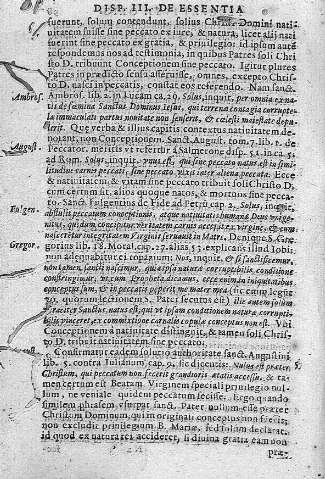 DISP. III. DE ESSENTIA
fuerunt, solum contendunt, solius Christi Domini nati-
uitatem fuisse sine peccato ex iure, & natura, licet alij nati
fuerint sine peccato ex gratia, & priuilegio: id ipsum
respondemus nos ad testimonia, in quibus Patres soli Chri
sto D. tribuunt Conceptionem sine peccato. Igitur plures
Patres in prædicto sensu asseruisse, omnes, excepto Chris-
to D. nasci in peccatis, constat eos referendo. Nam sanct.
Ambros. Ambros. lib. 2. in Lucam ca. 20. Solus, inquit, per omnia ex na
tis de fœmina Sanctus Dominus Iesus, qui terrena contagia corrupte-
la immaculati partus nouitate non senserit, & cœlesti maiestate depu-
lerit. Quæ verba & illius capitis contextus natiuitatem de-
notant, non Conceptionem. Sanct. August. tom. 7. lib. 1. de
August. Peccator. meritis vt refertur à Salmerone disp. 51. in ca. 5.
ad Rom. Solus, inquit, vnus est, qui sine peccato natus est in simi-
litudine carnis peccati, sine peccato vixit inter aliena peccata. Ecce
& natiuitatem & vitam sine peccato tribuit soli Christo D.
cum certum sit, alios quoque natos, & mortuos sine pecca-
Fulgen. to. Sanct. Fulgentius de Fide ad Petrū cap. 2. Solus, inquit,
abstulit peccatum conceptionis, atque natiuitatis humanæ Deus vnige-
nitus, qui dum conciperetur veritatem carnis accepit ex virgine, & cum
nasceretur integritatem Virginis seruauit in Matre. Denique S. Gre-
Gregor. gorius lib. 18. Moral. cap. 27. alias 57. explicans illud Iobi,
non adæquabitur ei topazium: Nos, inquit, & si sanctificemur,
non tamen sancti nascimur, quia ipsa natura corruptibilis conditione
constringimur, vt cum Propheta dicamus, ecce enim in iniquitatibus
conceptus sum, & in peccatis peperit me mater mea (sic enim legit
quorum lectionem S. Pater secutus est) ille autem solum
veraciter Sanctus natus est, qui vt ipsam conditionem naturæ corrupti-
bilis vinceret, ex commixtione carnalis copulæ conceptus non est. Vbi
Conceptionem à natiuitate distinguit, & tamen soli Chris-
to D. tribuit natiuitatem sine peccato.
Confirmatur eadem solutio authoritate sanct. Augustini
lib. 5. contra Iulianum cap. 9. sic dicentis: Nullus est præter
Christum, qui peccatum non fecerit grandioris ætatis accessu, & ta-
men certum est Beatam Virginem speciali priuilegio nul-
lum, ne veniale quidem peccatum fecisse. Ergo quando
similem phrasem vsurpat sanct. Pater nullum esse præter
Christum Dominum, qui in originali conceptus non fuerit;
non excludit priuilegium B. Mariæ, sed solum declarat,
id quod ex natura rei accideret, si diuina gratia eam non
præ-